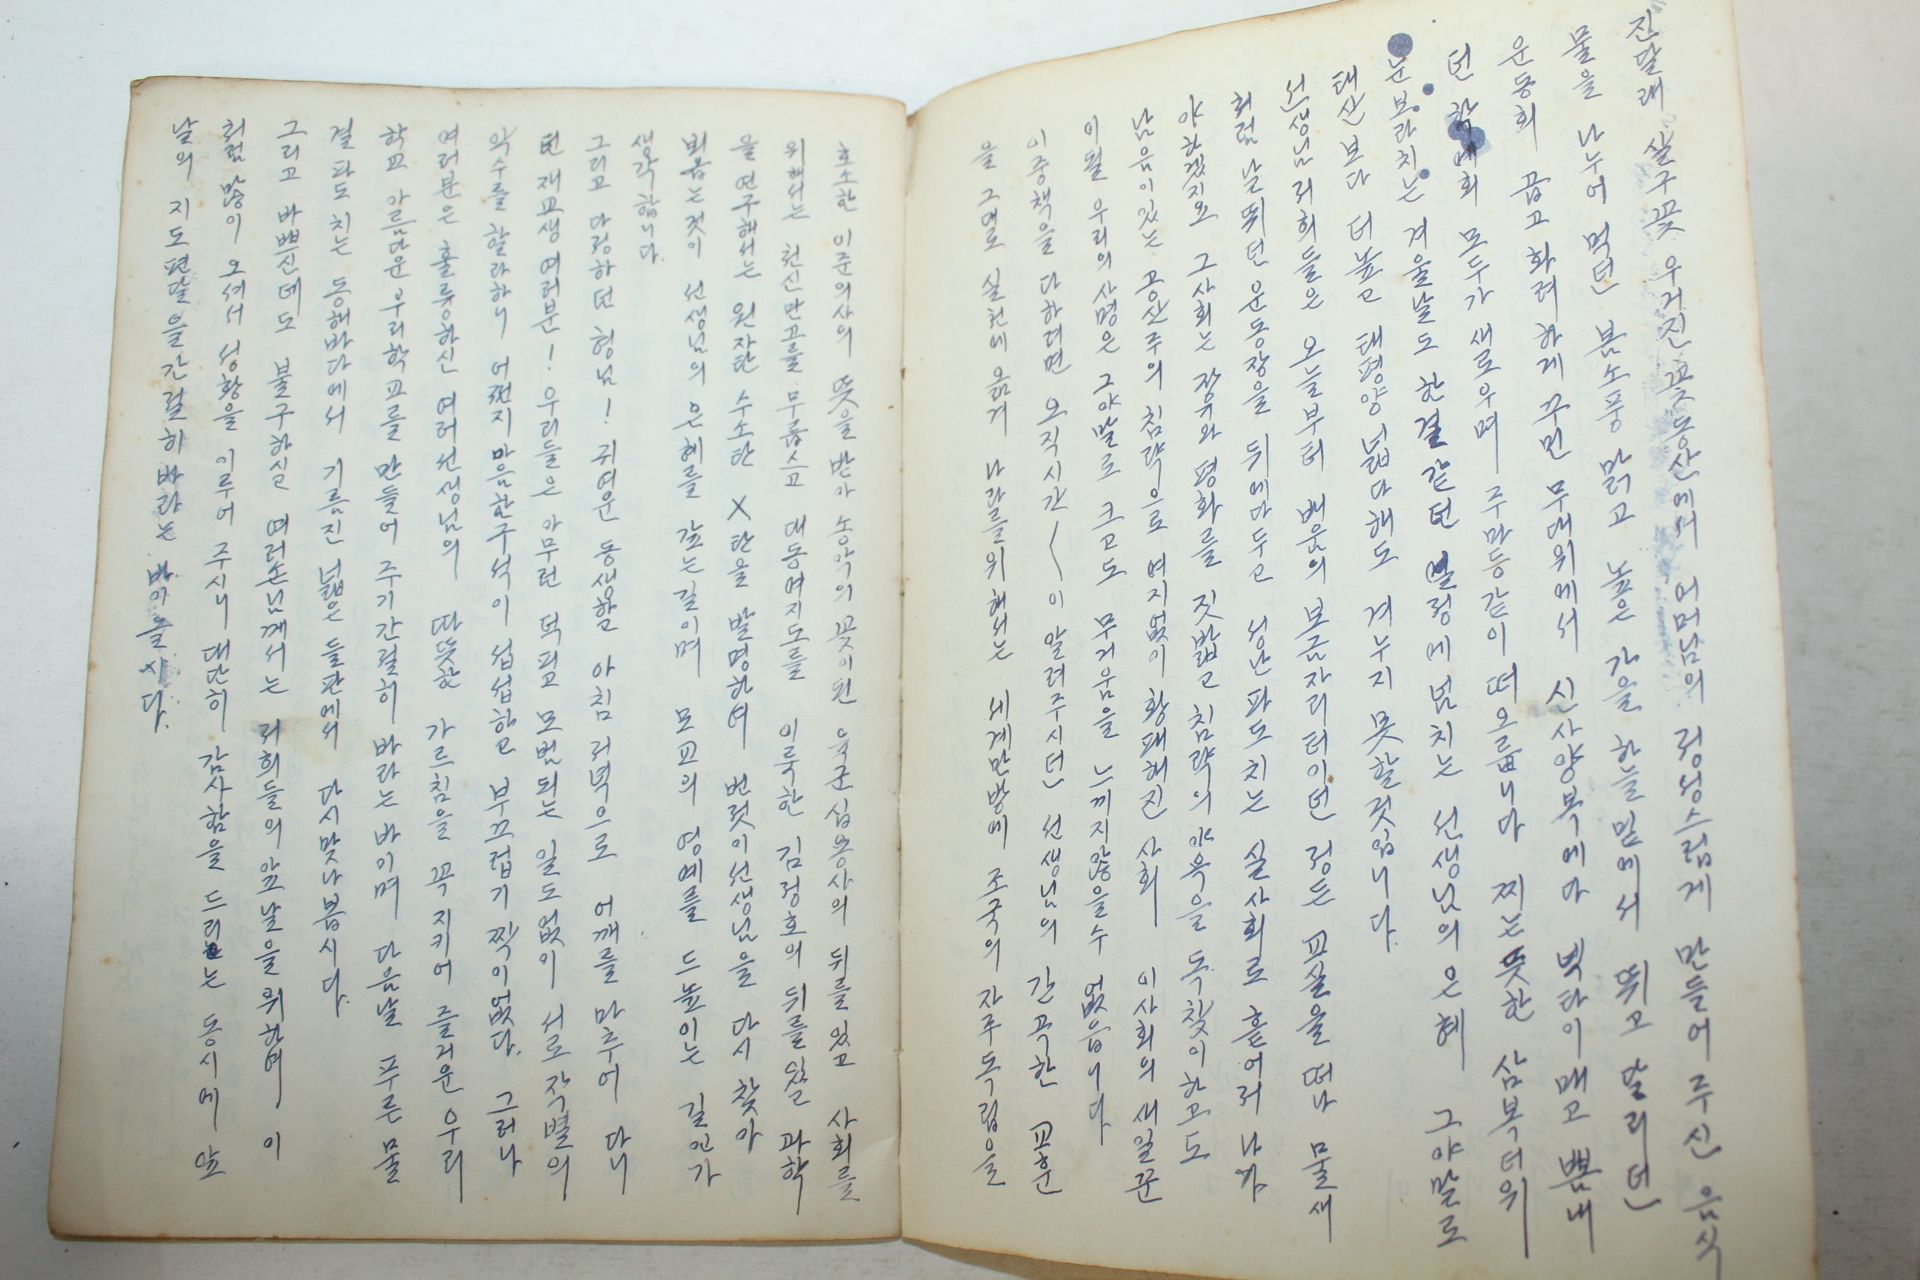 진달래 살구꽃 우거진 꽃동산에서 어머님의 정성스럽게 만들어 주신 음식
물을 나누어 먹던 봄소풍 맑고 높은 가을 하늘 밑에서 뛰고 달리던
운동회 곱고 화려하게 꾸민 무대위에서 신사양복에다 넥타이 매고 뽐내
던 학예회 모두가 새로우며 주마등같이 떠오릅니다 찌는 뜻한 삼복더위
눈보라치는 겨울날도 한결같던 열정에 넘치는 선생님의 은혜 그야말로
태산보다 더높고 태평양 넓다해도 겨누지 못할것입니다.
선생님 저희들은 오늘부터 배움의 보금자리터이던 정든 교실을 떠나 물새
처럼 날뛰던 운동장을 뒤에다두고 성난파도치는 실사회로 흩어저 나가
야하겠지요 그사회는 자유와 평화를 짓밟고 침략의 야욕을 독찿이하고도
남음이있는 공산주의 침략으로 여지없이 황패해진 사회 이사회의 새일꾼
이될 우리의사명은 그야말로 크고도 무거움을 느끼지않을수 없읍니다
이중책을 다하려면 오직시간 이 알려주시던 선생님의 간곡한 교훈
을 그대로 실천에 옮겨 나라를위해서는 세계만방에 조국의 자주독립을
호소한 이준의사의 뜻을 받가 송악의 꽃이된 육군 십용사의 뒤를 있고 사회를
위해서는 천신만고를 무릅스고 대동여지도를 이룩한 김정호의 뒤를있을 과학
을 연구해서는 원자탄 수소탄 X탄을 발명하여 번젓이선생님을 다시 찾아
뵈옵는것이 선생님의 은혜를 갚는길이며 모교의 영예를 드높이는 길인가
생각합니다.
그리고 다정하던 형님! 귀여운 동생함 아침 저녁으로 어깨를 마추어 다니
던 재교생 여러분! 우리들은 아무런 덕되고 모범되는 일도없이 서로 작별의
악수를 할라하니 어쩐지 마음한구석이 섭섭하고 부끄럽기 짝이없다. 그러나
여러분은 훌륭하신 여러선생님의 따뜻한 가르침을 꼭 지키어 즐거운 우리
학교 아름다운 우리학교를 만들어 주기간절히 바라는 바이며 다음날 푸른 물
결 파도치는 동해바다에서 기름진 넓은 들판에서 다시맞나봅시다.
그리고 바쁘신데도 불구하실 여러손님께서는 저희들의 앞날을 위하여 이
처럼 많이 오셔서 성황을 이루어 주시니 대단히 감사함을 드리는 동시에 앞
날의 지도편달을간절히바라는 바이올시다.